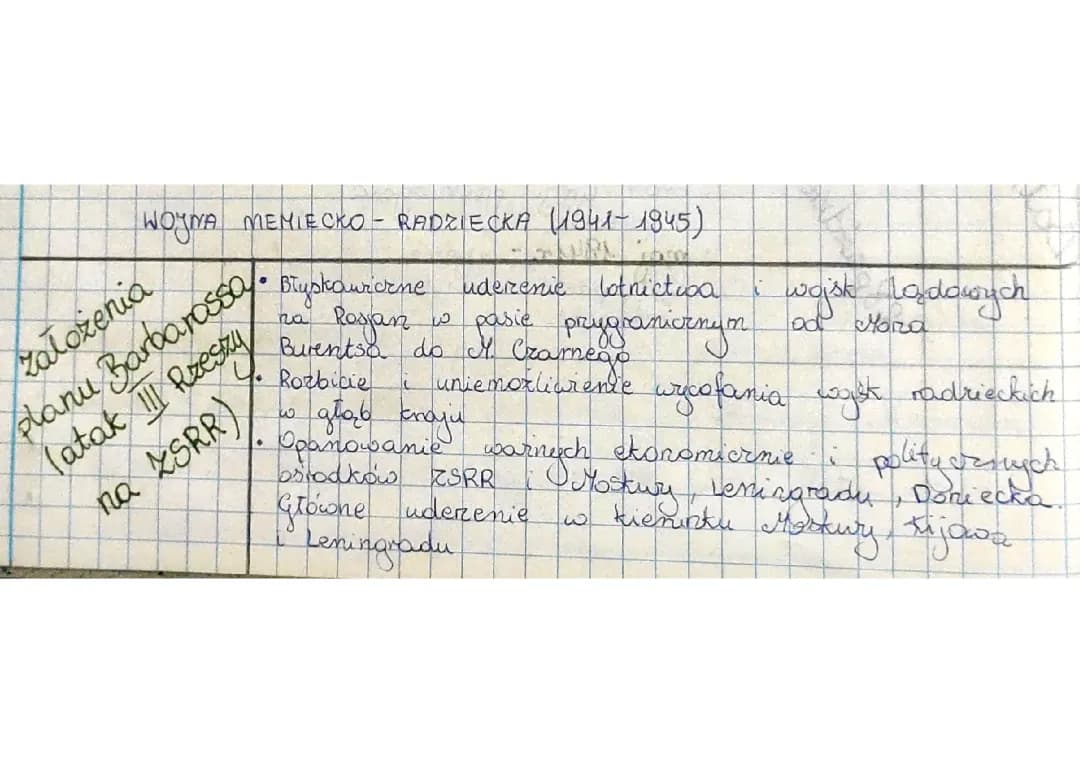 WOJNA NIEMIECKO - RADZIECKA (1941-1945)
założenia
planu Barbarossa
(atak III Rzeszy
na ZSRR)
• Błyskawiczne uderzenie lotnictwa i wojsk lądowych
na Rosjan w pasie przygranicznym od Morza
Burentsa do M. Czarnego
• Rozbicie i uniemożliwienie wycofania wojsk radzieckich
w głąb kraju
• Opanowanie ważnych ekonomicznie i politycznych
ośrodków ZSRR i Moskwy, Leningradu, Doniecka.
Główne uderzenie w kierunku Moskwy, Kijowa
i Leningradu